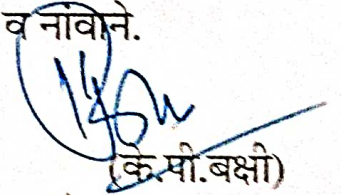 व नांवाने.
(के.पी.बक्षी)